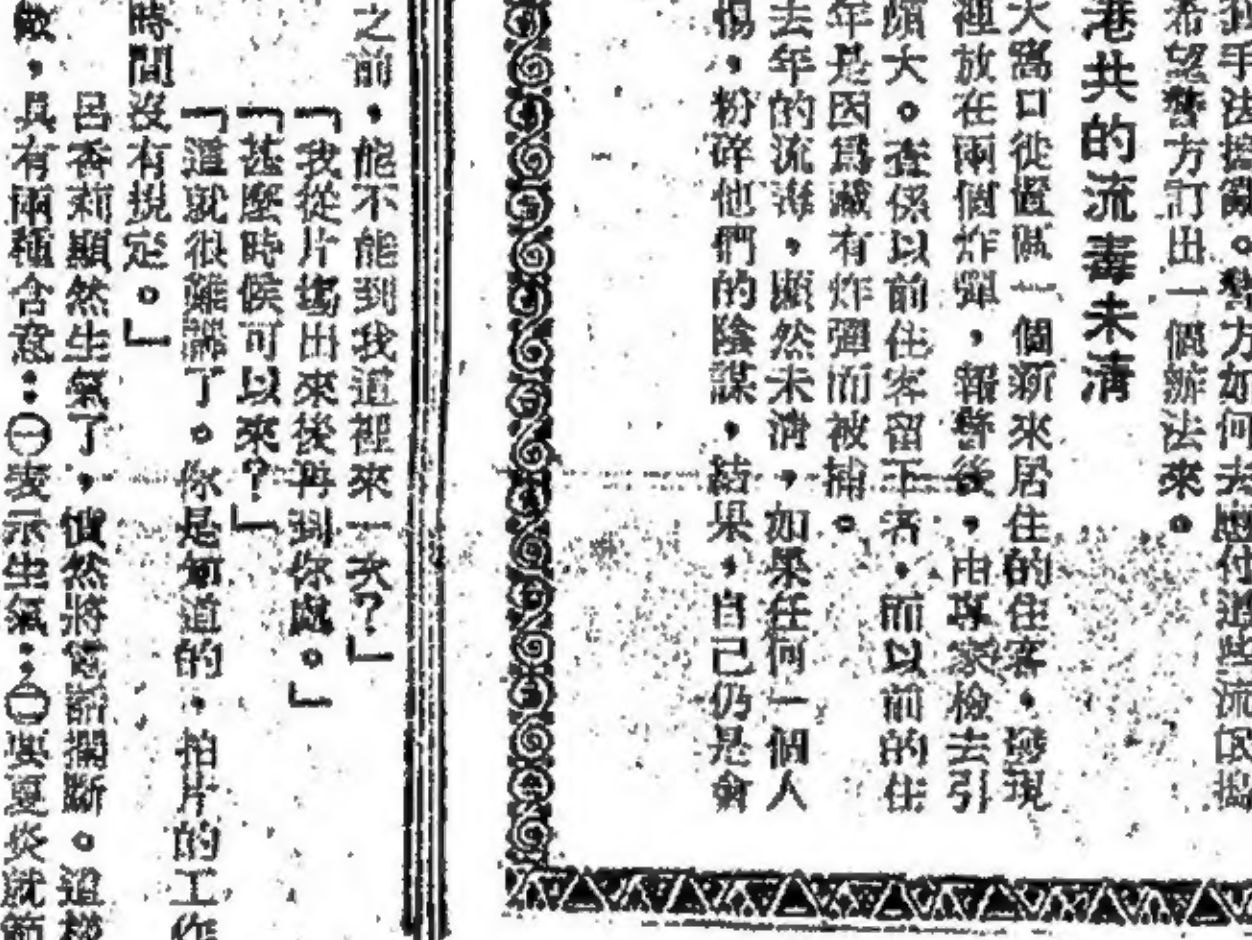 手法搗亂。警方如何去應付這些流氓搗
希望警方訂出一個辦法來。
港共的流毒未清
大窩口徙置區一個新來居住的住客,發現
裡放在兩個炸彈,報警後,由專家檢去引
頗大。查係以前住客留下者,而以前的住
年是因爲藏有炸彈而被捕。
去年的流毒,顯然未清,如果任何一個人
惕,粉碎他們的陰謀,結果,自己仍是會
之前,能不能到我這裡來一次?」
「我從片場出來後再到你處。」
「甚麼時候可以來?」
「這就很難講了。你是知道的,拍片的工作
時間沒有規定。」
呂香莉顯然生氣了,憤然將電話擱斷。這樣
做,具有兩種含意:㊀表示生氣;㊁要夏炎就範